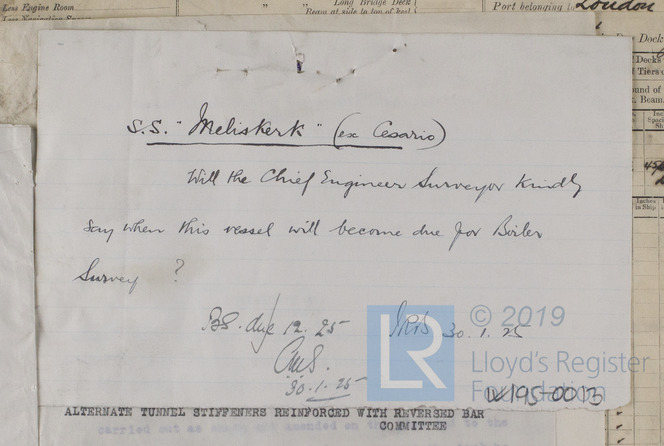 Less Engine Room " " Long Bridge Deck Port belonging to London
Beam at side to top of keel
Dock
Docks
Tiers
ound of
Beam
Inches
in Ship
S.S. "Meliskerk" (ex Cesario)
Will the Chief Engineer Surveyor kindly
say when this vessel will become due for Boiler
Survey ?
BS. due 12.25
30.1.25
30.1.25
LR
© 2019
Lloyd's Register
Foundation
W195-0013
ALTERNATE TUNNEL STIFFENERS REINFORCED WITH REVERSED BAR
COMMITTEE